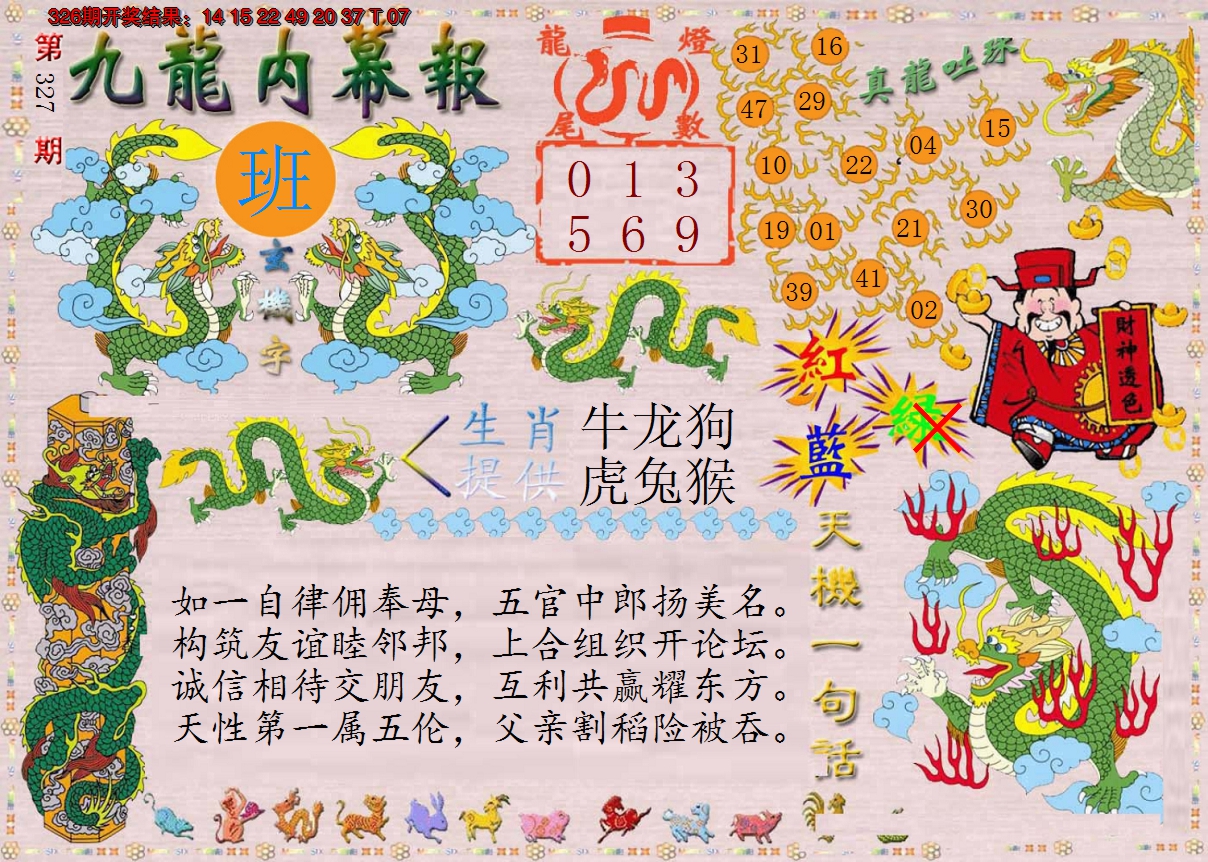 326期开奖结果：14 15 22 49 20 37 T 07
第327期
九龍内幕報
班
玄機字
龍燈
尾數
0 1 3
5 6 9
真龍吐珠
31 16
47 29
10 22 04 15
19 01 21 30
39 41 02
財神透色
紅
綠
藍
生肖
提供
牛龙狗
虎兔猴
天機一句話
如一自律佣奉母，五官中郎扬美名。
构筑友谊睦邻邦，上合组织开论坛。
诚信相待交朋友，互利共赢耀东方。
天性第一属五伦，父亲割稻险被吞。